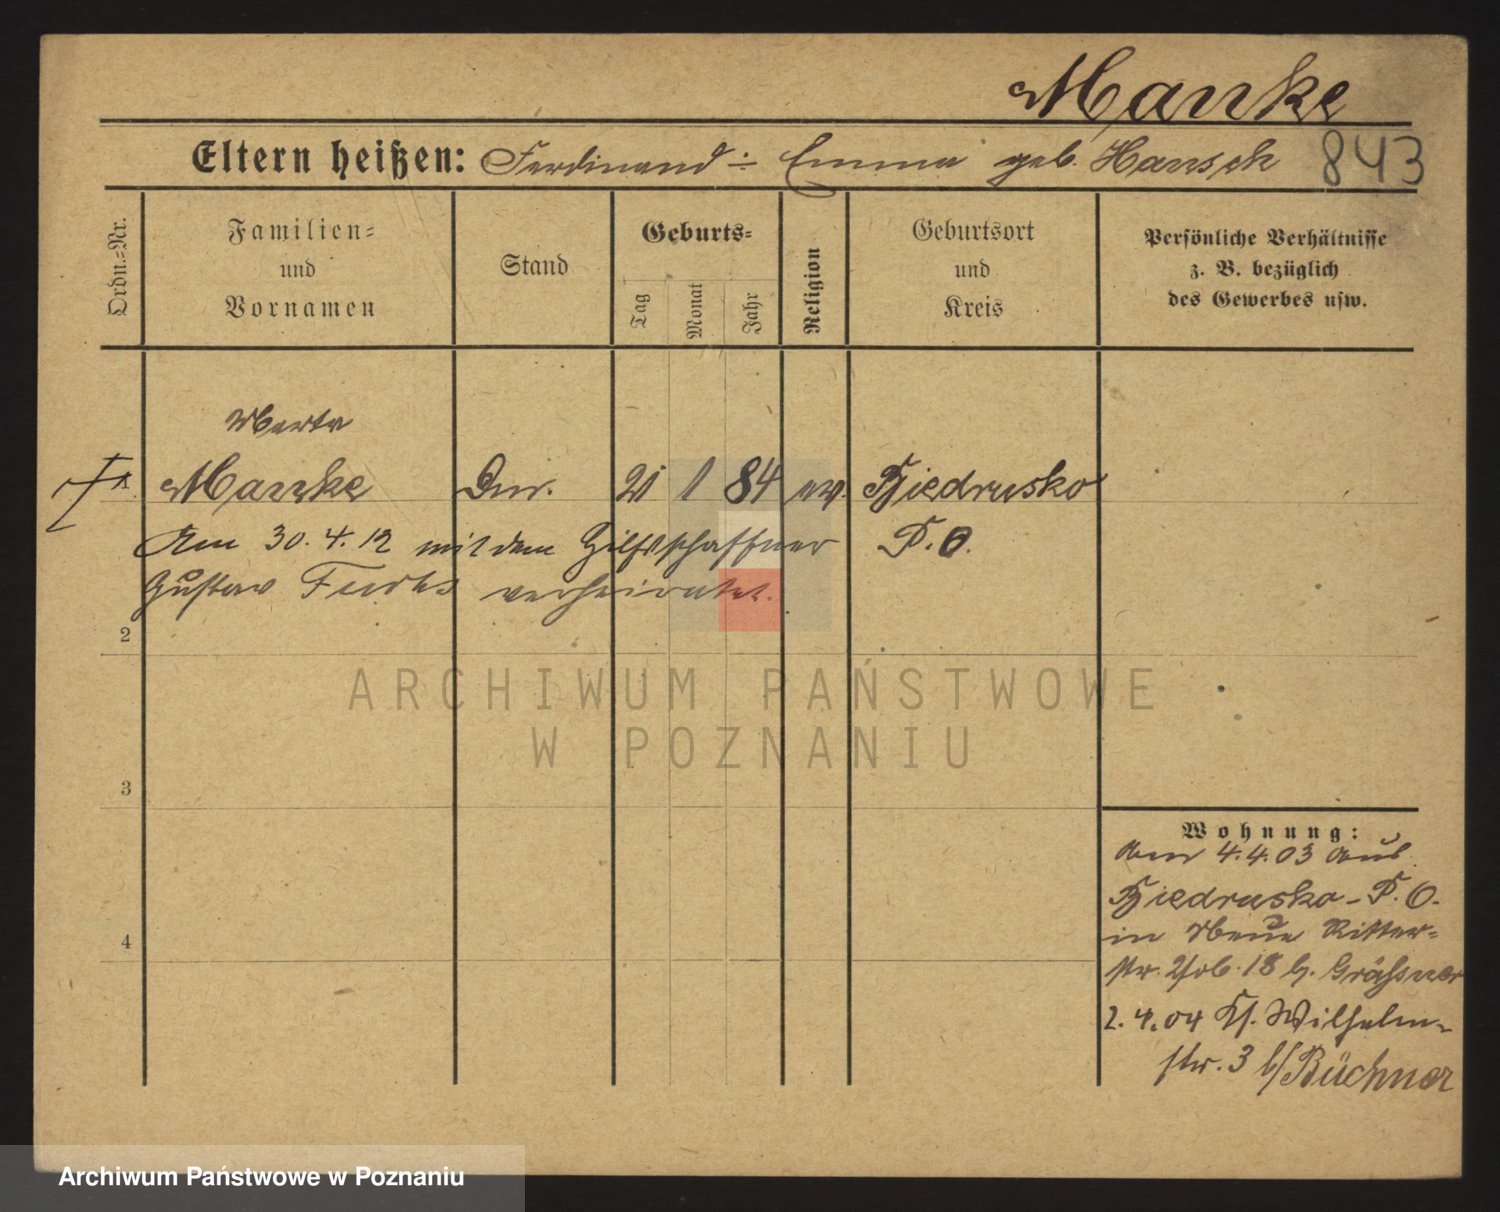 Manke
Eltern heißen: Ferdinand ÷ Emma geb. Hansch 843
Ordn.=Nr.
Familien=
und
Vornamen
Stand
Geburts=
Tag
Monat
Jahr
Religion
Geburtsort
und
Kreis
Persönliche Verhältnisse
z. B. bezüglich
des Gewerbes usw.
Marta
1 Manke Dnr. 21 1 84 ev. Biedrusko
Am 30. 4. 12 mit dem Hilfsschaffner P. O.
Gustav verheiratet.
2
3
4
Wohnung:
Am 4.4.03 aus
Biedrusko - P. O.
in Neue Ritter=
str. 18 b. Grässner
2. 4. 04 Ks. Wilhelm=
str. 3 b/ Büchner
ARCHIWUM PAŃSTWOWE
W POZNANIU
Archiwum Państwowe w Poznaniu